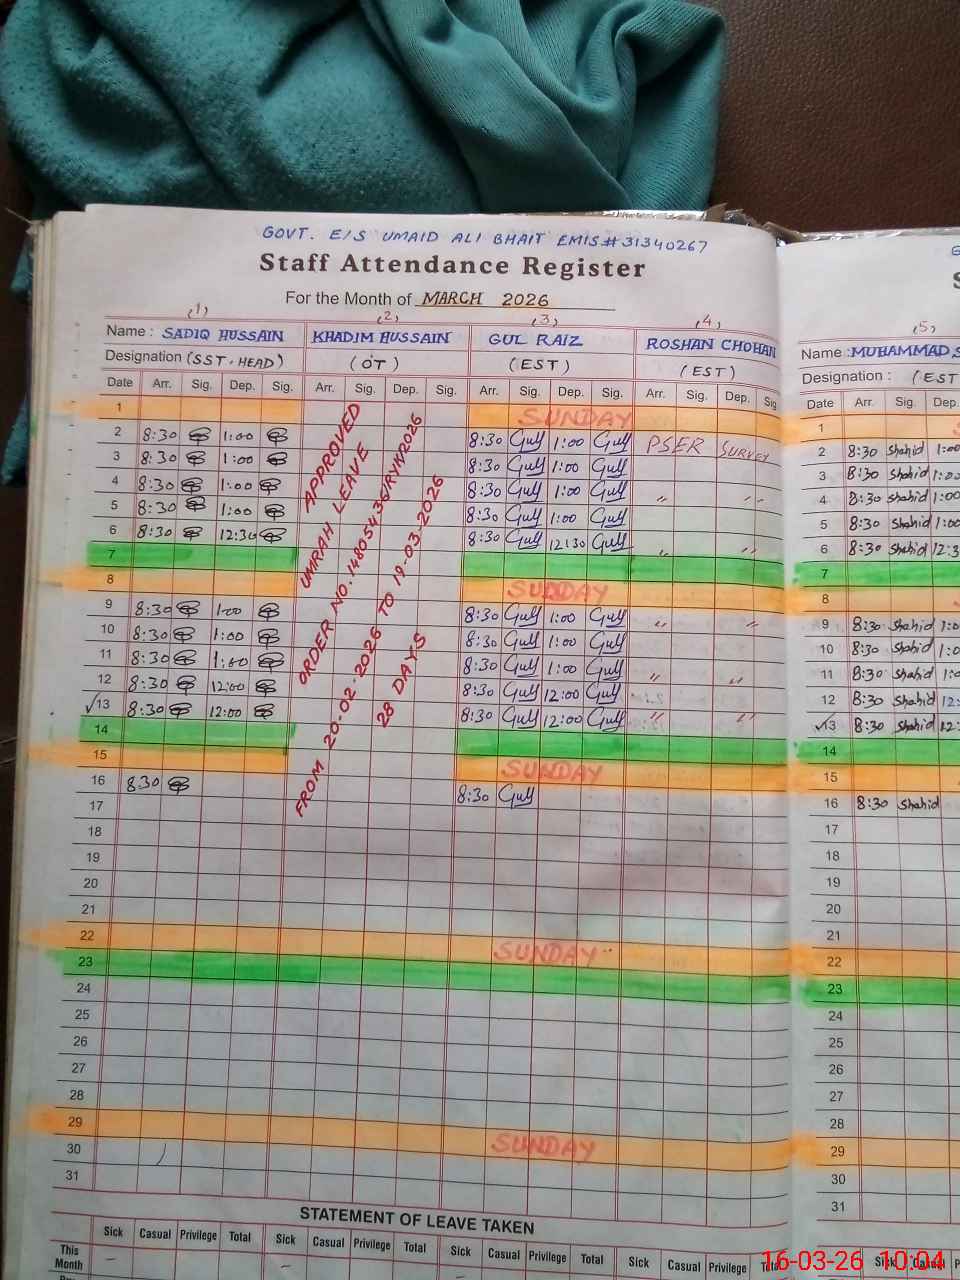 GOVT. E/S UMAID ALI BHAIT EMIS#31340267
Staff Attendance Register
For the Month of MARCH 2026
(1) (2) (3) (4) (5)
Name : SADIQ HUSSAIN KHADIM HUSSAIN GUL RAIZ ROSHAN CHOHAN Name : MUHAMMAD
Designation (SST-HEAD) (OT) (EST) (EST) Designation : (EST
Date Arr. Sig. Dep. Sig. Arr. Sig. Dep. Sig. Arr. Sig. Dep. Sig. Arr. Sig. Dep. Sig Date Arr. Sig. Dep.
1 SUNDAY 1
2 8:30 1:00 8:30 Gull 1:00 Gull PSER SURVEY 2 8:30 Shahid 1:00
3 8:30 1:00 8:30 Gull 1:00 Gull 3 8:30 Shahid 1:00
4 8:30 1:00 8:30 Gull 1:00 Gull " " 4 8:30 Shahid 1:00
5 8:30 1:00 8:30 Gull 1:00 Gull 5 8:30 Shahid 1:00
6 8:30 12:30 8:30 Gull 12:30 Gull " " 6 8:30 Shahid 12:3
7 7
8 SUNDAY 8
9 8:30 1:00 8:30 Gull 1:00 Gull " " 9 8:30 Shahid 1:0
10 8:30 1:00 8:30 Gull 1:00 Gull 10 8:30 Shahid 1:0
11 8:30 1:00 8:30 Gull 1:00 Gull " " 11 8:30 Shahid 1:0
12 8:30 12:00 8:30 Gull 12:00 Gull 12 8:30 Shahid 12:
13 8:30 12:00 8:30 Gull 12:00 Gull " " 13 8:30 Shahid 12:
14 14
15 SUNDAY 15
16 8:30 8:30 Gull 16 8:30 Shahid
17 17
18 18
19 19
20 20
21 21
22 SUNDAY 22
23 23
24 24
25 25
26 26
27 27
28 28
29 SUNDAY 29
30 30
31 31
APPROVED
UMRAH LEAVE
ORDER NO. 14805436/RYK/2026
FROM 20-02-2026 TO 19-03-2026
28 DAYS
STATEMENT OF LEAVE TAKEN
Sick Casual Privilege Total Sick Casual Privilege Total Sick Casual Privilege Total Sick Casual Privilege Total Sick Casual
This Month
16-03-26 10:04